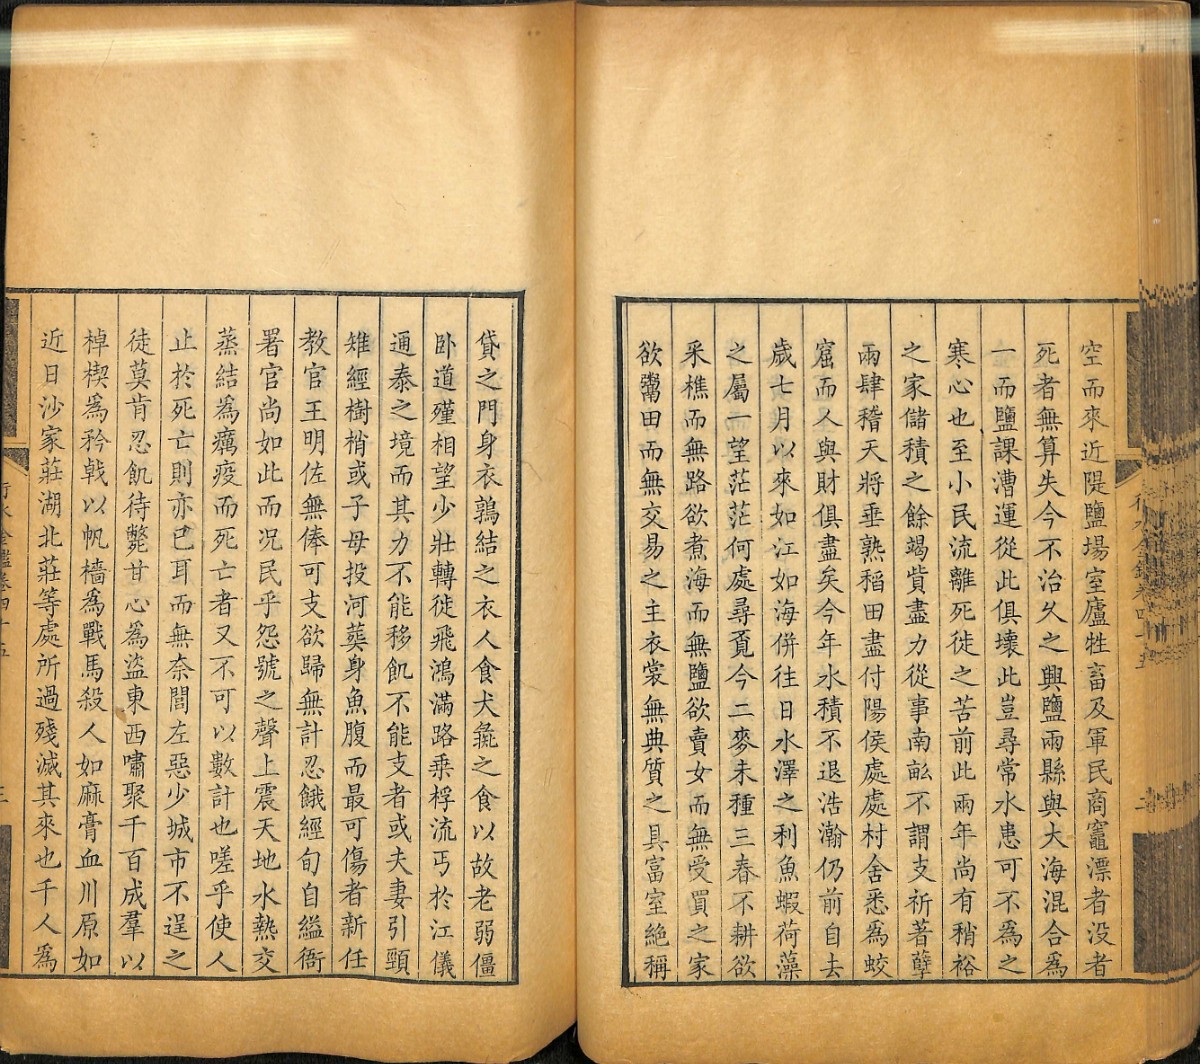 空而來近隄鹽場室廬牲畜及軍民商竈漂者没者
死者無算失今不治久之興鹽兩縣與大海混合為
一而鹽課漕運從此俱壞此豈尋常水患可不為之
寒心也至小民流離死徙之苦前此兩年尚有稍裕
之家儲積之餘竭貲盡力從事南畝不謂支祈著孽
兩肆稽天將垂熟稻田盡付陽侯處處村舍悉為蛟
窟而人與財俱盡矣今年水積不退浩瀚仍前自去
歳七月以來如江如海併往日水澤之利魚蝦荷藻
之屬一望茫茫何處尋覔今二麥未種三春不耕欲
采樵而無路欲煮海而無鹽欲賣女而無受買之家
欲鬻田而無交易之主衣裳無典質之具富室絶稱
貸之門身衣鶉結之衣人食犬彘之食以故老弱僵
卧道殣相望少壯轉徙飛鴻滿路乗桴流丐於江儀
通泰之境而其力不能移飢不能支者或夫妻引頸
雉經樹梢或子母投河葬身魚腹而最可傷者新任
教官王明佐無俸可支欲歸無計忍餓經旬自縊衙
署官尚如此而况民乎怨號之聲上震天地水熱交
蒸結為癘疫而死亡者又不可以數計也嗟乎使人
止於死亡則亦已耳而無奈閭左惡少城市不逞之
徒莫肯忍飢待斃甘心為盜東西嘯聚千百成羣以
棹楔為矜戟以帆檣為戰馬殺人如麻膏血川原如
近日沙家莊湖北莊等處所過殘滅其來也千人為
行水金鑑卷四十五
三